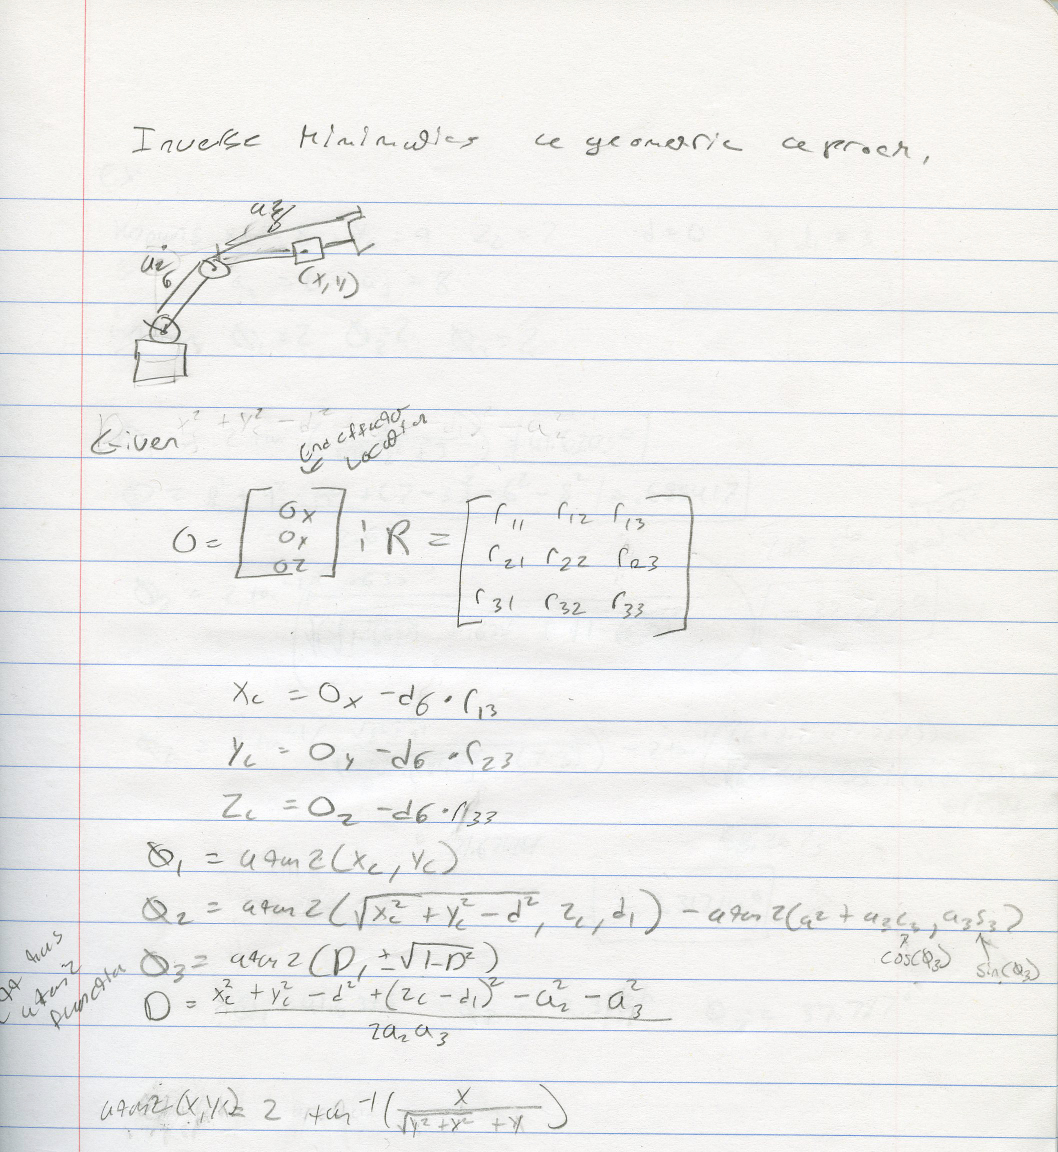 Inverse Kinimatics a geometric aproch,
a3
a2
(x,y)
Given
end effector
location
O = [ Ox Ox Oz ] ; R = [ r11 r12 r13
r21 r22 r23
r31 r32 r33 ]
Xc = Ox - d6 · r13
Yc = Oy - d6 · r23
Zc = Oz - d6 · r33
θ1 = atan2(Xc, Yc)
θ2 = atan2(√(Xc² + Yc² - d²), Zc, d1) - atan2(a2 + a3c3, a3s3)
cos(θ3) sin(θ3)
θ3 = atan2(D, ±√(1-D²))
D = (Xc² + Yc² - d² + (Zc - d1)² - a2² - a3²) / (2a2a3)
has
atan2
function
atan2(x,y) = 2 tan⁻¹(x / (√(y² + x²) + y))